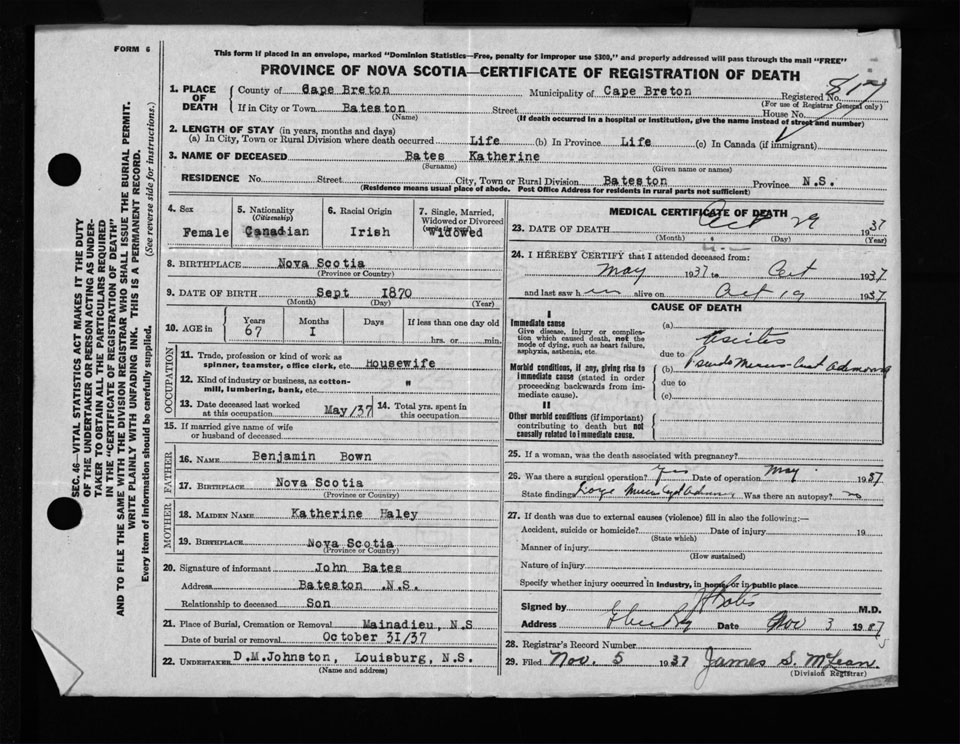 FORM 6
This form if placed in an envelope, marked "Dominion Statistics—Free, penalty for improper use $300," and properly addressed will pass through the mail "FREE"
PROVINCE OF NOVA SCOTIA—CERTIFICATE OF REGISTRATION OF DEATH
SEC. 46—VITAL STATISTICS ACT MAKES IT THE DUTY
OF THE UNDERTAKER OR PERSON ACTING AS UNDER-
TAKER TO OBTAIN ALL THE PARTICULARS REQUIRED
IN THE "CERTIFICATE OF REGISTRATION OF DEATH"
AND TO FILE THE SAME WITH THE DIVISION REGISTRAR WHO SHALL ISSUE THE BURIAL PERMIT.
WRITE PLAINLY WITH UNFADING INK. THIS IS A PERMANENT RECORD.
Every item of information should be carefully supplied. (See reverse side for instructions.)
1. PLACE OF DEATH
County of Cape Breton Municipality of Cape Breton Registered No. 817
(For use of Registrar General only)
If in City or Town Bateston Street House No.
(Name) (If death occurred in a hospital or institution, give the name instead of street and number)
2. LENGTH OF STAY (in years, months and days)
(a) In City, Town or Rural Division where death occurred Life (b) In Province Life (c) In Canada (if immigrant)
3. NAME OF DECEASED Bates Katherine
(Surname) (Given name or names)
RESIDENCE No. Street City, Town or Rural Division Bateston Province N.S.
(Residence means usual place of abode. Post Office Address for residents in rural parts not sufficient)
4. Sex
Female
5. Nationality
(Citizenship)
Canadian
6. Racial Origin
Irish
7. Single, Married,
Widowed or Divorced
Widowed
8. BIRTHPLACE Nova Scotia
(Province or Country)
9. DATE OF BIRTH Sept 1870
(Month) (Day) (Year)
10. AGE in
Years Months Days If less than one day old
67 I hrs. or min.
OCCUPATION
11. Trade, profession or kind of work as
spinner, teamster, office clerk, etc. Housewife
12. Kind of industry or business, as cotton-
mill, lumbering, bank, etc. "
13. Date deceased last worked
at this occupation May/37
14. Total yrs. spent in
this occupation
15. If married give name of wife
or husband of deceased
FATHER
16. NAME Benjamin Bown
17. BIRTHPLACE Nova Scotia
(Province or Country)
MOTHER
18. MAIDEN NAME Katherine Haley
19. BIRTHPLACE Nova Scotia
(Province or Country)
20. Signature of informant John Bates
Address Bateston .N.S.
Relationship to deceased Son
21. Place of Burial, Cremation or Removal Mainadieu, N.S
Date of burial or removal October 31/37
22. UNDERTAKER D.M.Johnston, Louisburg, N.S.
(Name and address)
MEDICAL CERTIFICATE OF DEATH
23. DATE OF DEATH Oct 29 1937
(Month) (Day) (Year)
24. I HEREBY CERTIFY that I attended deceased from:
May 1937 to Oct 1937
and last saw her alive on Oct 19 1937
CAUSE OF DEATH
I
Immediate cause
Give disease, injury or complica-
tion which caused death, not the
mode of dying, such as heart failure,
asphyxia, asthenia, etc.
(a) Ascites
due to
Morbid conditions, if any, giving rise to
immediate cause (stated in order
proceeding backwards from im-
mediate cause).
(b) Pseudo
due to
(c)
II
Other morbid conditions (if important)
contributing to death but not
causally related to immediate cause.
25. If a woman, was the death associated with pregnancy?
26. Was there a surgical operation? Yes Date of operation May 1937
State findings Large Was there an autopsy? no
27. If death was due to external causes (violence) fill in also the following:—
Accident, suicide or homicide? Date of injury 19
(State which)
Manner of injury
(How sustained)
Nature of injury
Specify whether injury occurred in industry, in home, or in public place
Signed by M.D.
Address Date Nov 3 1937
28. Registrar's Record Number
29. Filed Nov. 5 1937 James S. McLean
(Division Registrar)